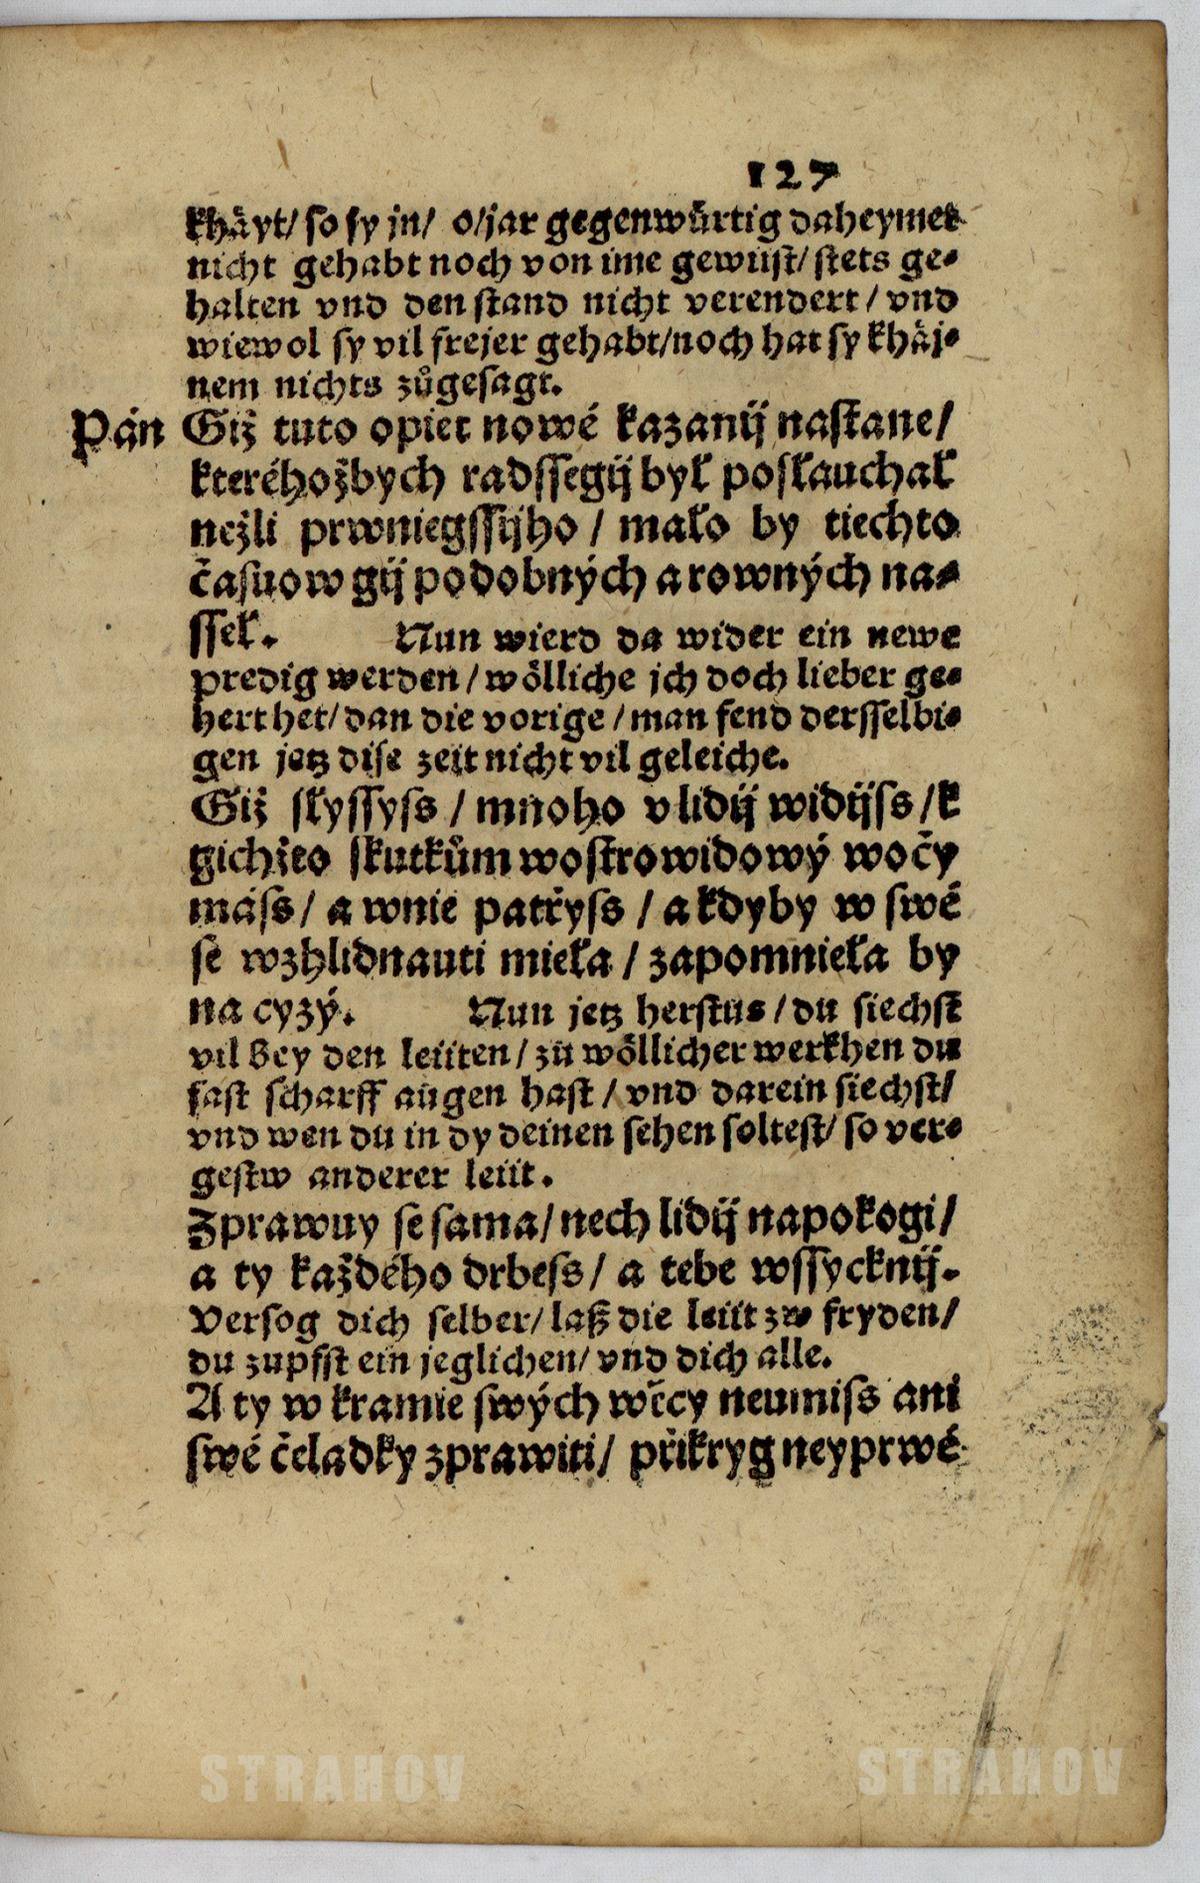 127
khäyt/ so sy jn/ o/jar gegenwürtig daheymet
nicht gehabt noch von ime gewüst/ stets ge-
halten vnd den stand nicht verendert / vnd
wiewol sy vil frejer gehabt/noch hat sy khäj-
nem nichts zůgesagt.
Pán Giž tuto opiet nowé kazanij nastane/
kteréhožbych radssegij był posłauchał
nežli prwniegssijho / mało by tiechto
časuow gij podobných a rowných na-
ssel. Nun wierd da wider ein newe
predig werden / wölliche jch doch lieber ge-
hert het/ dan die vorige / man fend dersselbi-
gen jetz dise zeit nicht vil geleiche.
Giž słyssyss / mnoho v lidij widijss / k
gichžto skutkům wostrowidowý wočy
máss / a wnie patřyss / a kdyby w swé
se wzhlidnauti mieła / zapomnieła by
na cyzý. Nun jetz herstus / du siechst
vil bey den leüten / zü wöllicher werkhen du
fast scharff aügen hast / vnd darein siechst/
vnd wen du in dy deinen sehen soltest/ so ver-
gestw anderer leüt.
Zprawuy se sama/ nech lidij napokogi/
a ty každého drbess/ a tebe wssycknij.
Versog dich selber/ laß die leüt zw fryden/
du zupfst ein jeglichen/ vnd dich alle.
A ty w kramie swých wěcy neumiss ani
swé čeladky zprawiti/ přikryg neyprwé
STRAHOV STRAHOV